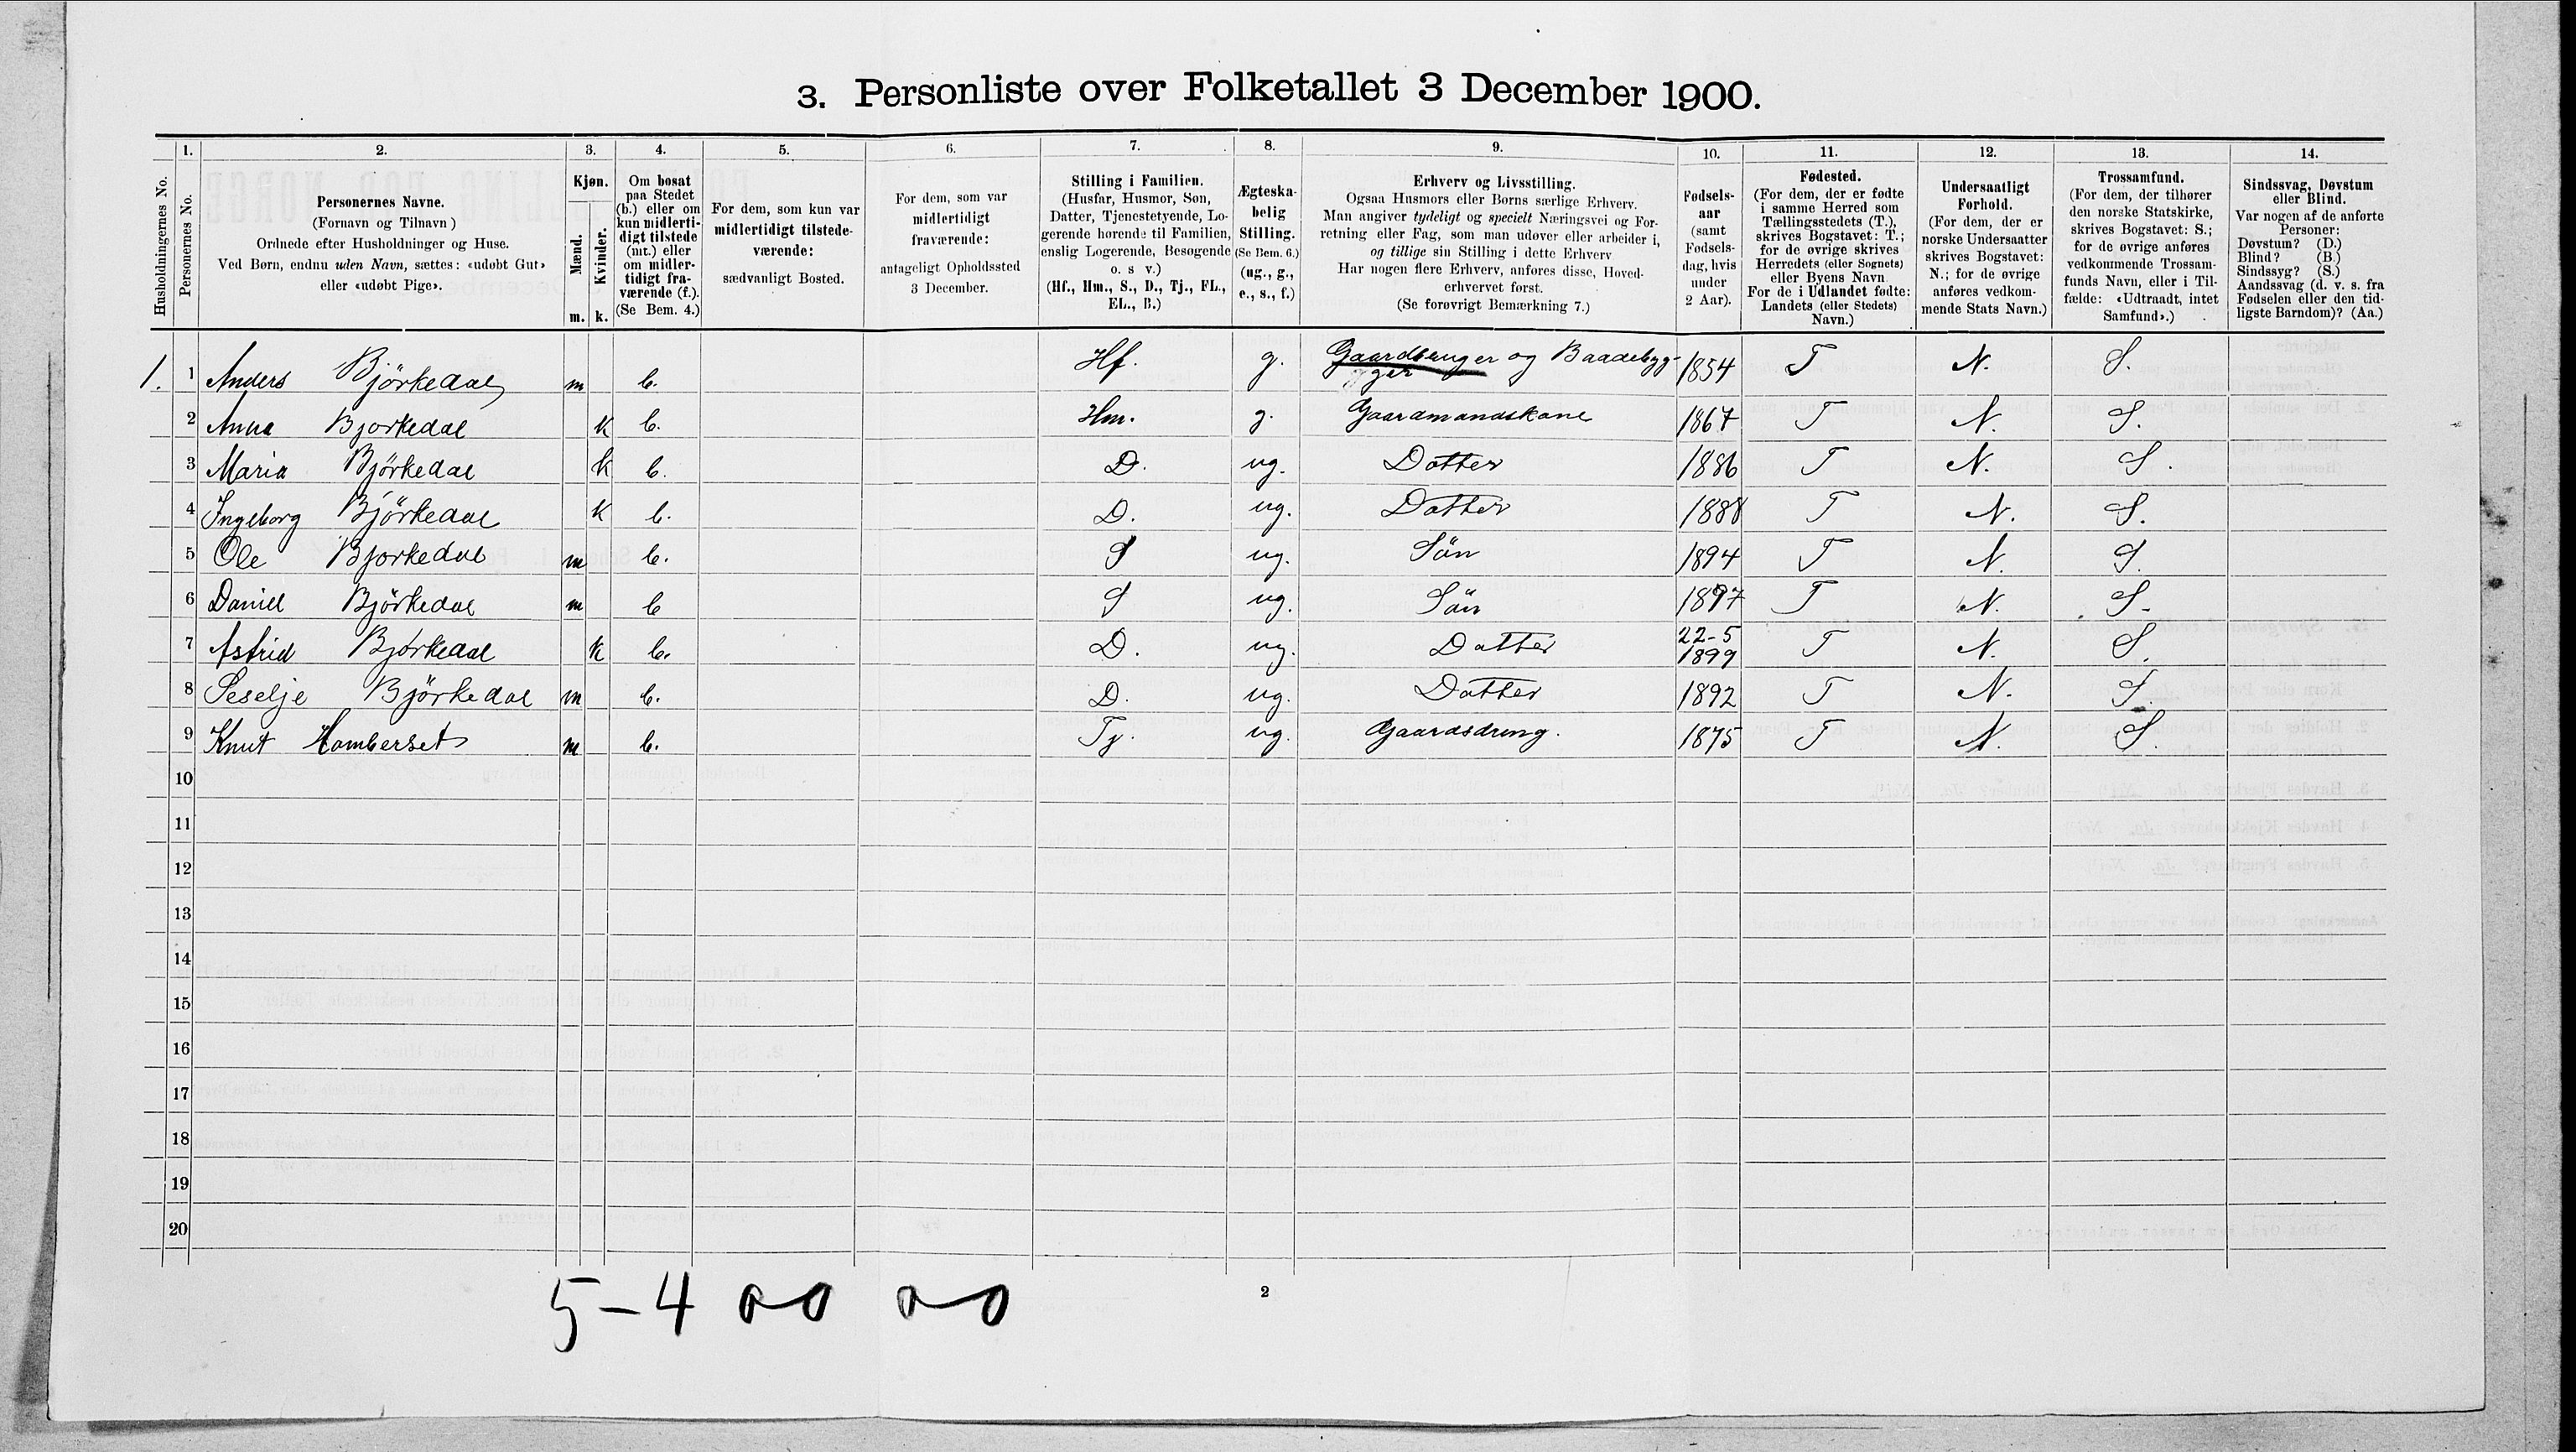 3. Personliste over Folketallet 3 December 1900.
Husholdningernes No.
1.
Personernes No.
2.
Personernes Navne.
(Fornavn og Tilnavn)
Ordnede efter Husholdninger og Huse.
Ved Børn, endnu uden Navn, sættes: «udøbt Gut»
eller «udøbt Pige».
3.
Kjøn.
Mænd.
Kvinder.
m. k.
4.
Om bosat
paa Stedet
(b.) eller om
kun midlerti-
digt tilstede
(mt.) eller
om midler-
tidigt fra-
værende (f.).
(Se Bem. 4.)
5.
For dem, som kun var
midlertidigt tilstede-
værende:
sædvanligt Bosted.
6.
For dem, som var
midlertidigt
fraværende:
antageligt Opholdssted
3 December.
7.
Stilling i Familien.
(Husfar, Husmor, Søn,
Datter, Tjenestetyende, Lo-
gerende hørende til Familien,
enslig Logerende, Besøgende
o. s v.)
(Hf., Hm., S., D., Tj., FL.,
EL., B.)
8.
Ægteska-
belig
Stilling.
(Se Bem. 6.)
(ug., g.,
e., s., f.)
9.
Erhverv og Livsstilling.
Ogsaa Husmors eller Børns særlige Erhverv.
Man angiver tydeligt og specielt Næringsvei og For-
retning eller Fag, som man udøver eller arbeider i,
og tillige sin Stilling i dette Erhverv
Har nogen flere Erhverv, anføres disse, Hoved-
erhvervet først.
(Se forøvrigt Bemærkning 7.)
10.
Fødsels-
aar
(samt
Fødsels-
dag, hvis
under
2 Aar).
11.
Fødested.
(For dem, der er fødte
i samme Herred som
Tællingsstedets (T.),
skrives Bogstavet: T.;
for de øvrige skrives
Herredets (eller Sognets)
eller Byens Navn
For de i Udlandet fødte:
Landets (eller Stedets)
Navn.)
12.
Undersaatligt
Forhold.
(For dem, der er
norske Undersaatter
skrives Bogstavet:
N.; for de øvrige
anføres vedkom-
mende Stats Navn.)
13.
Trossamfund.
(For dem, der tilhører
den norske Statskirke,
skrives Bogstavet: S.;
for de øvrige anføres
vedkommende Trossam-
funds Navn, eller i Til-
fælde: «Udtraadt, intet
Samfund».)
14.
Sindssvag, Døvstum
eller Blind.
Var nogen af de anførte
Personer:
Døvstum? (D.)
Blind? (B.)
Sindssyg? (S.)
Aandssvag (d. v. s. fra
Fødselen eller den tid-
ligste Barndom)? (Aa.)
1. 1 Anders Björkedal m b. Hf. g. Gaardbruger og Baadebyg-
ger 1854 T N. S.
2 Anna Bjorkedal k b. Hm. g. Gaardmandskone 1867 T N. S.
3 Maria Björkedal k b. D. ug. Datter 1886 T N. S.
4 Ingeborg Björkedal k b. D. ug. Datter 1888 T N. S.
5 Ole Bjorkedal m b. S ug. Sön 1894 T N. S.
6 Daniel Björkedal m b S ug. Sön 1897 T N. S.
7 Astrid Bjorkedal k b. D. ug. Datter 22-5
1899 T N. S.
8 Seselje Björkedal m b. D. ug. Datter 1892 T N. S.
9 Knut Homberset m b. Tj. ug. Gaardsdreng. 1875 T N. S.
10
11
12
13
14
15
16
17
18
19
20
5-4 0-0 0-0
2